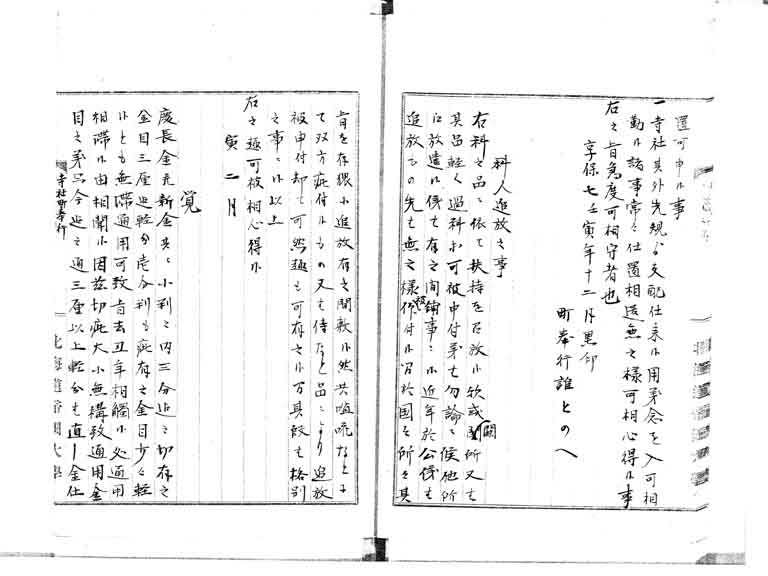 還可申候事
一寺社其外先規ゟ支配仕来候用事念を入可相
勤候諸事常々仕置相違無之様可相心得候事
右之旨急度可相守者也
享保七壬寅年十二月黒印
町奉行誰とのへ
科人追放之事
右科之品ニ依て扶持を召放候歟或闕所又ハ
其品軽く過料ホ可被申付茅も勿論ニ候他所
江放遣候儀も有之間鋪事ニ候近年於公儀も
追放もの先も無之様被仰付候写於国々所々其
旨を存猥小追放有之間敷候然共喧嘩なとニ
て双方疵付候もの又ハ侍なと品ニより追放
被申付却て可然趣も可有之候万其段も格別
之事ニ候以上
右之趣可被相心得候
寅二月
覚
慶長金元新金共ニ小判ニ内三分迄之切有之
金目三厘迄軽分壱分判も疵有之金目少々軽
候とも無滞通用可致旨去丑年相觸候処通用
相滞候由相聞候因茲切疵大小無構致通用金
目之茅ハ今迄之通三厘以上軽分も直し金仕
寺社町奉行
北海道帝国大学